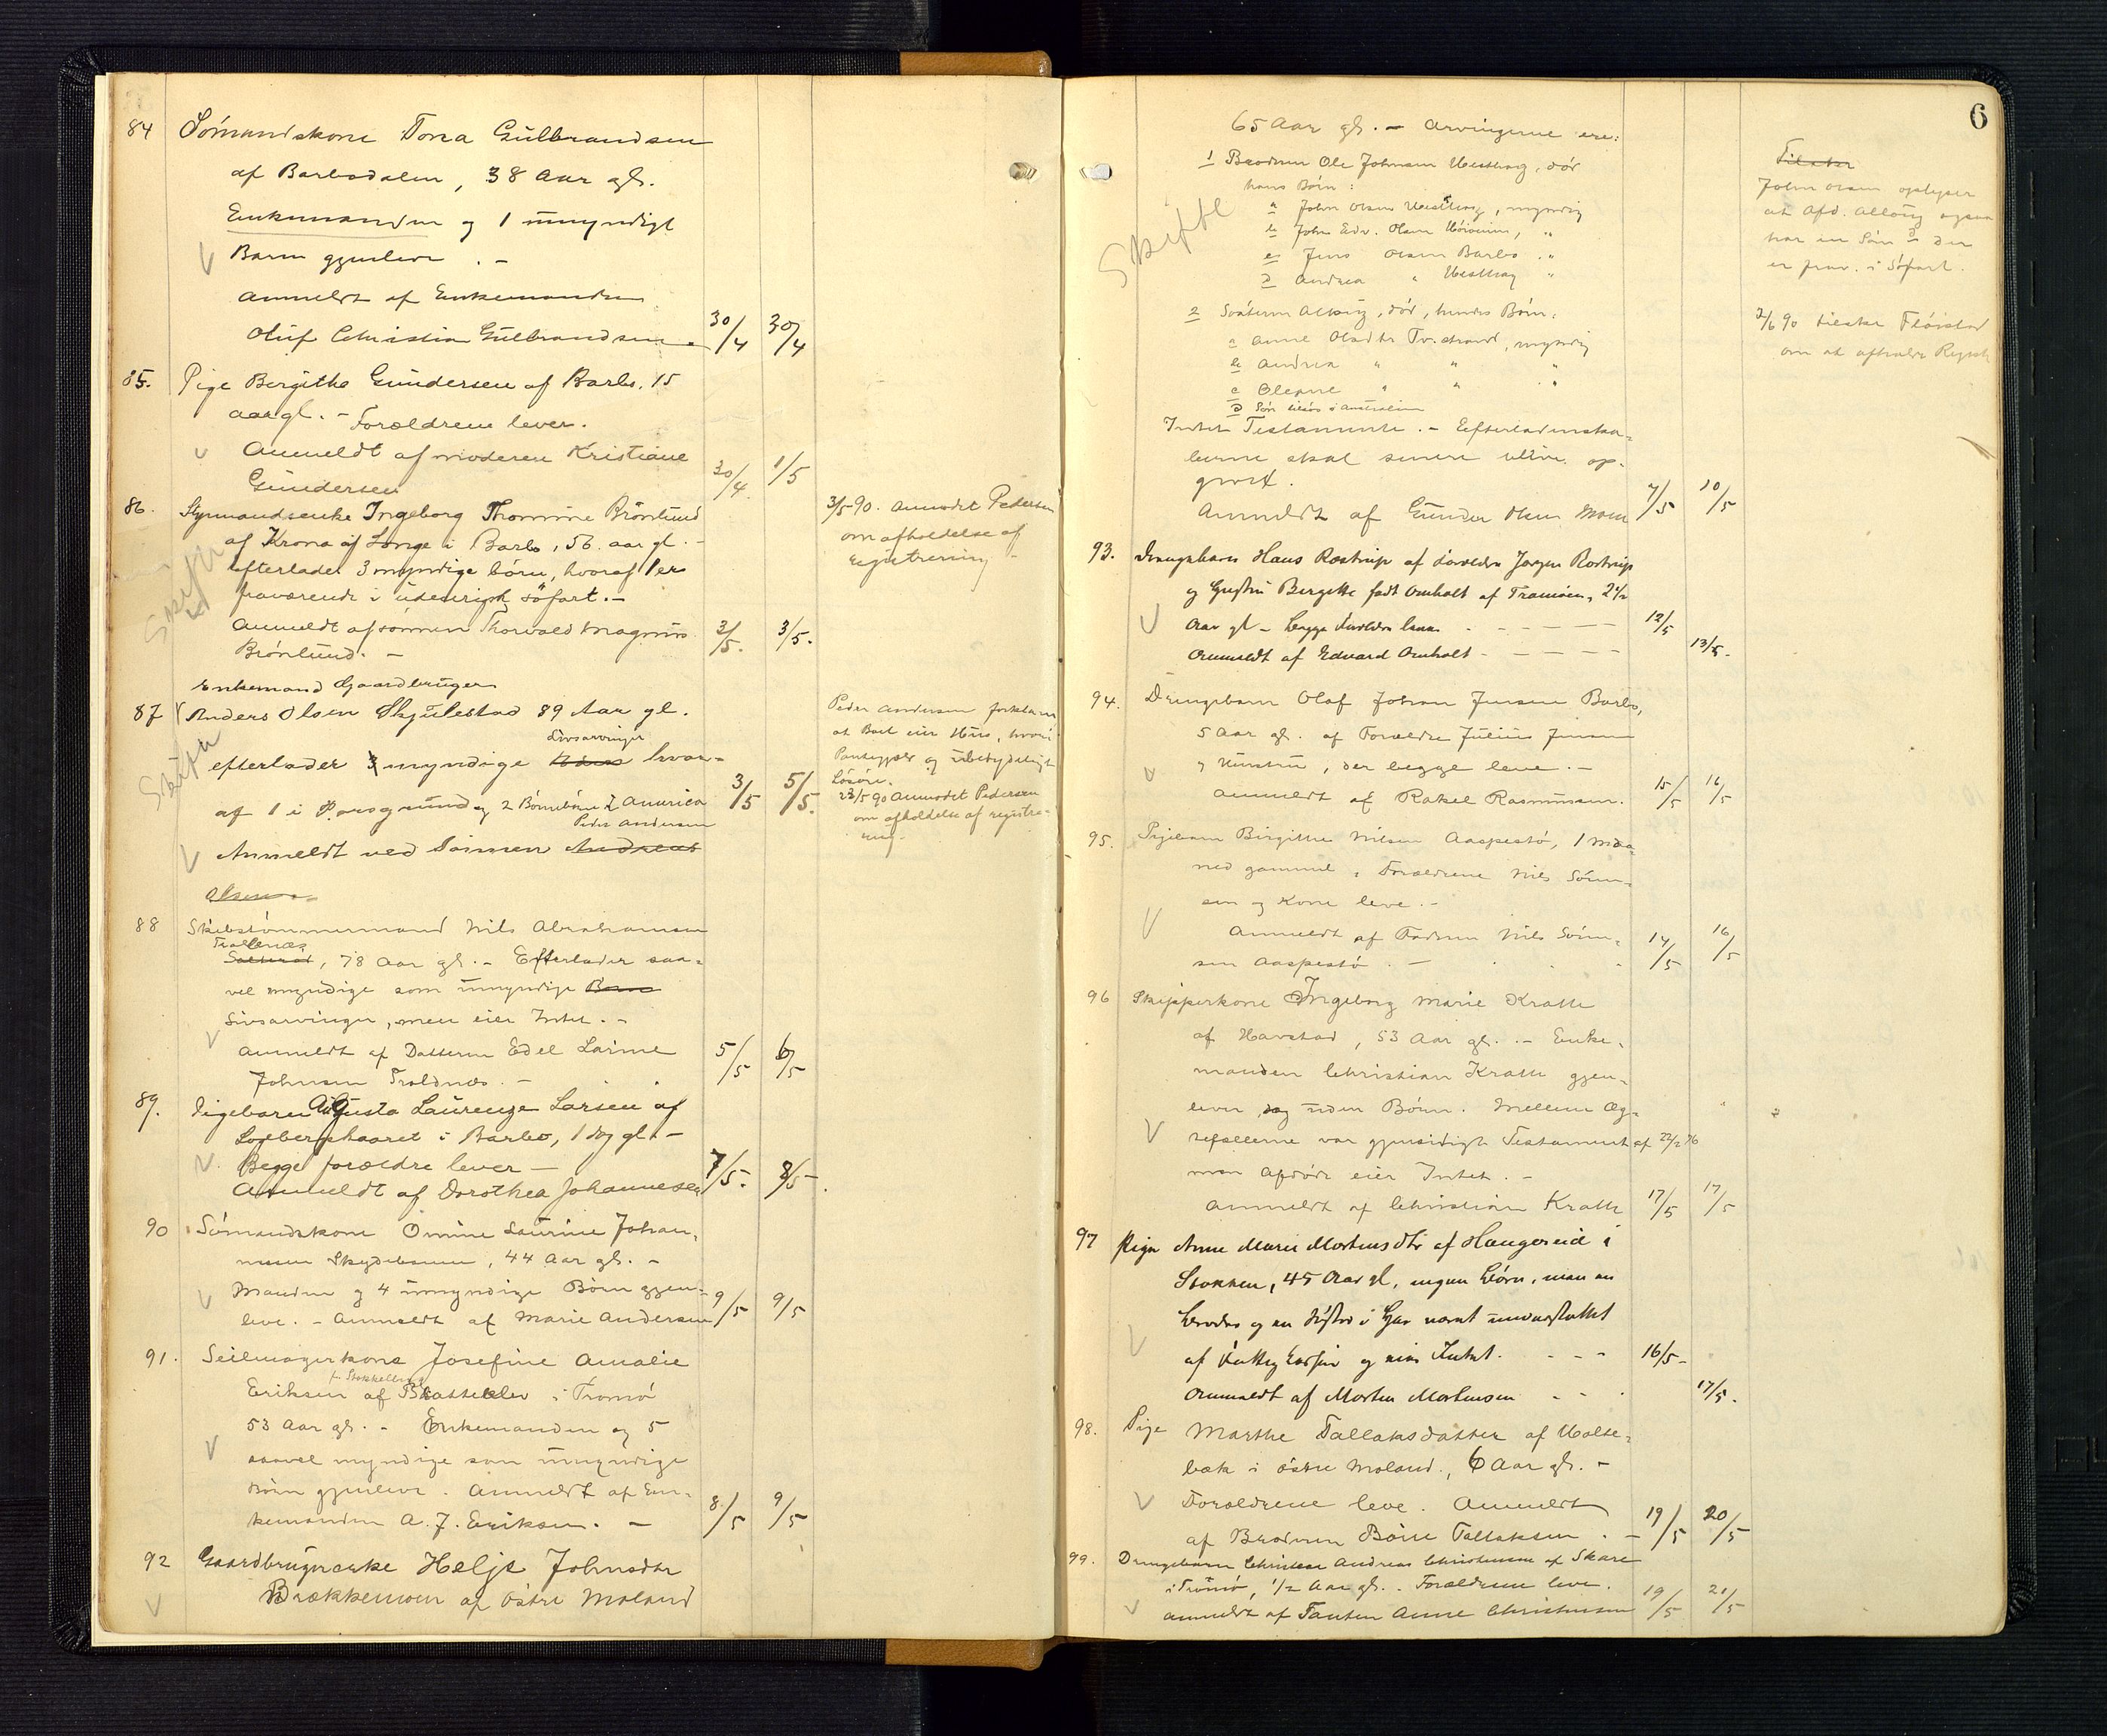 84 Sömandskone Tora Gulbrandsen
af Barbodalen, 38 Aar gl.
Enkemanden og 1 umyndigt
Barn gjenleve . -
Anmeldt af Enkemanden
Oluf Christian Gulbrandsen. 30/4 30/4
85. Pige Bergithe Gundersen af Barbo, 15
aar gl. - Forældrene lever.
Anmeldt af moderen Kristiane
Gundersen 30/4 1/5
86. Styrmandsenke Ingeborg Thomine Brönlund
af Krona af Longe i Barbo, 56 aar gl. -
Skifte
efterlader 3 myndige börn, hvoraf 1 er
fraværende i udenrigsk söfart. -
Anmeldt af sönnen Thorvald Magnus
Brönlund. - 3/5. 3/5.
3/5 90. Anmodet Pedersen
om afholdelse af
registrering -
Enkemand Gaardbruger
87 Anders Olsen Skjulestad 89 Aar gl.
Skifte
Livsarvinger
efterlader 3 myndige hvor-
af 1 i Porsgrund og 2 Börnebörn i Amerika 3/5 5/5.
Peder Andersen
Anmeldt ved Sönnen Andreas
Olsen
Peder Andersen forklarer
at Boet eier Hus, hvori
Pantegjæld og ubetydeligt
Lösöre.
23/5 90 Anmodet Pedersen
om afholdelse af registre-
ring.
88 Skibstömmermand Nils Abrahamsen
Troldnæs
, 78 Aar gl. - Efterlader saa-
vel myndige som umyndige Börn
Livsarvinger, men eier Intet. -
Anmeldt af Datteren Edel Larine
Johnsen Troldnæs. - 5/5 6/5
89. Pigebarn Augusta Laurenze Larsen af
i Barbo, 1 dag gl. -
Begge forældre lever -
Anmeldt af Dorothea Johannesen 7/5. 8/5
90 Sömandskone Omine Laurine Johan-
nesen Skydebanen, 44 Aar gl. -
Manden og 4 umyndige Börn gjen-
leve. - Anmeldt af Marie Andersen 9/5 9/5
91. Seilmagerkone Josefine Amalie
fr. Stokkelling
Eriksen af Bratteklev i Tromö
53 Aar gl. - Enkemanden og 5
saavel myndige som umyndige
Börn gjenleve. Anmeldt af En-
kemanden A. J. Eriksen. - 8/5 9/5
92 Gaardbrugerenke Helje Johnsdtr
Brækkemoen af östre Moland
6
65 Aar gl. - Arvingerne ere:
1 Broderen Ole Johnsen Vesthag, död
hans Börn:
Skifte
a John Olsen Vesthag, myndig
b John Edv. Olsen , "
c Jens Olsen Barbo "
d Andrea " Vesthag "
2 Sösteren Aslaug, död, hendes Börn:
a Anne Olsdtr Tvestrand, myndig
b Andrea " " "
c Olegine " " "
d Sön tilsös i Australien
Intet Testamente. - Efterladenska-
berne skal senere blive op-
givet.
Anmeldt af Gunder Olsen Moen 7/5 10/5
John Olsen oplyser
at Afd. Aslaug ogsaa
har en Sön d der
er frav. i Söfart.
2/6 90 tilskr. Flöistad
om at afholde Regist
93. Drengebarn Hans Rostrup af Forældre Jörgen Rostrup
og Hustru Bergitte födt Omholt af Tromöen, 2 1/2
Aar gl - begge Forældre leve - - - - 12/5
Anmeldt af Edvard Omholt - - - - 13/5.
94. Drengebarn Olaf Johan Jensen Barbo,
5 Aar gl. af Forældre Julius Jensen
og Hustru, der begge leve. -
Anmeldt af Rakel Rasmussen. 15/5 16/5
95. Pigebarn Birgitte Nilsen Aaspestö, 1 Maa-
ned gammel, Forældrene Nils Sörn-
sen og Kone leve. -
Anmeldt af Faderen Nils Sörn-
sen Aaspestö. - 14/5 16/5
96 Skipperkone Ingeborg Marie Krath
af Havstad, 53 Aar gl. - Enke-
manden Christian Krath gjen-
lever, dog uden Börn. Mellem Æg-
tefællerne var gjensidigt Testament af 22/2 76
men Afdöde eier Intet. -
Anmeldt af Christian Krath 17/5 17/5
97 Pige Anne Marie Mortensdtr af Haugereid i
Stokken, 45 Aar gl, ingen Börn, men en
Broder og en Söster i live været understöttet
af Fattigkassen og eier Intet. - - - 16/5 -
Anmeldt af Morten Mortensen - - 17/5.
98. Pige Marthe Tallaksdatter af Holte-
bæk i östre Moland, 6 Aar gl. -
Forældrene leve. Anmeldt
af Broderen Börre Tallaksen. - 19/5 20/5
99. Drengebarn Christen Andreas Christensen af Skare
i Tromö, 1/2 Aar gl. - Forældrene leve.
Anmeldt af Tanten Anne Christensen 19/5 21/5